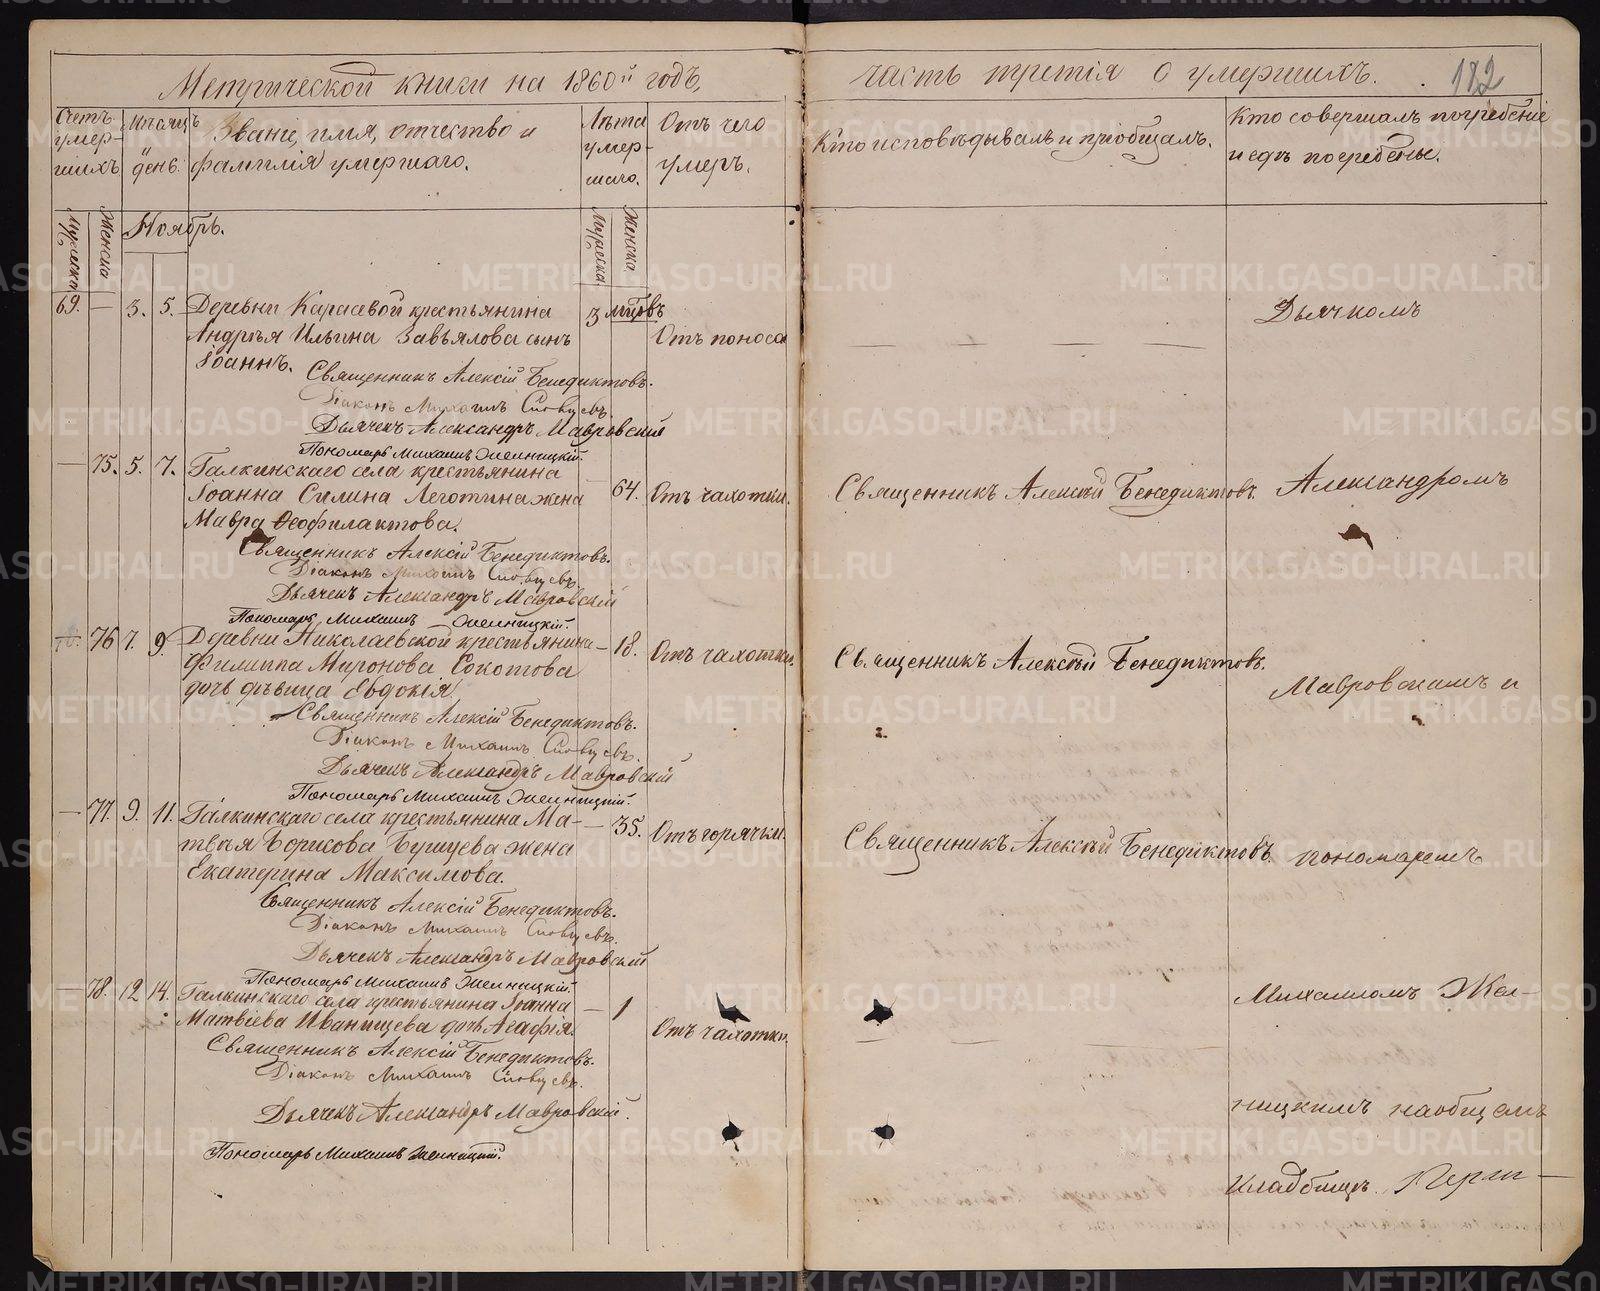 Метрической книги на 1860й годъ,
часть третія о умершихъ.
182
Счетъ умер-
шихъ
Мѣсяцъ
и
день.
Званіе, имя, отчество и
фамилія умершаго.
Лѣта
умер-
шаго.
Отъ чего
умеръ.
Кто исповѣдывалъ и пріобщалъ.
Кто совершалъ погребеніе
и гдѣ погребены.
Мужеска
Женска
Ноябрь.
Мужеска
Женска
69. — 3. 5. Деревни Карасевой крестьянина 3 мцовъ
Андрѣя Ильина Завьялова сынъ Отъ поноса
Іоаннъ.
Дьячкомъ
Священникъ Алексій Бенедиктовъ.
Діаконъ Михаилъ
Дьячекъ Александръ Мавровскій
Пономарь Михаилъ Желницкій.
— 75. 5. 7. Галкинскаго села крестьянина
Іоанна Силина Леготина жена 64. Отъ чахотки. Священникъ Алексѣй Бенедиктовъ. Александромъ
Мавра Ѳеофилактова.
Священникъ Алексій Бенедиктовъ.
Діаконъ Михаилъ
Дьячекъ Александръ Мавровскій
Пономарь Михаилъ Желницкій.
76 7. 9. Деревни Николаевской крестьянина — 18. Отъ чахотки. Священникъ Алексѣй Бенедиктовъ.
Филиппа Миронова Сокотова
дочь дѣвица Евдокія
Мавровскимъ и
Священникъ Алексій Бенедиктовъ.
Діаконъ Михаилъ
Дьячекъ Александръ Мавровскій
Пономарь Михаилъ Желницкій.
— 77. 9. 11. Галкинскаго села крестьянина Ма- — 35. Отъ горячки. Священникъ Алексѣй Бенедиктовъ. пономаремъ
твѣя Борисова Бушуева жена
Екатерина Максимова.
Священникъ Алексій Бенедиктовъ.
Діаконъ Михаилъ
Дьячекъ Александръ Мавровскій
Пономарь Михаилъ Желницкій.
— 78. 12 14. Галкинскаго села крестьянина Іоанна — 1 Отъ чахотки.
Матвіева Иванищева дочь Агафія.
Михаиломъ Жел-
Священникъ Алексій Бенедиктовъ.
Діаконъ Михаилъ
Дьячекъ Александръ Мавровскій.
Пономарь Михаилъ Желницкій.
ницкимъ на общемъ
кладбищѣ.
METRIKI.GASO-URAL.RU